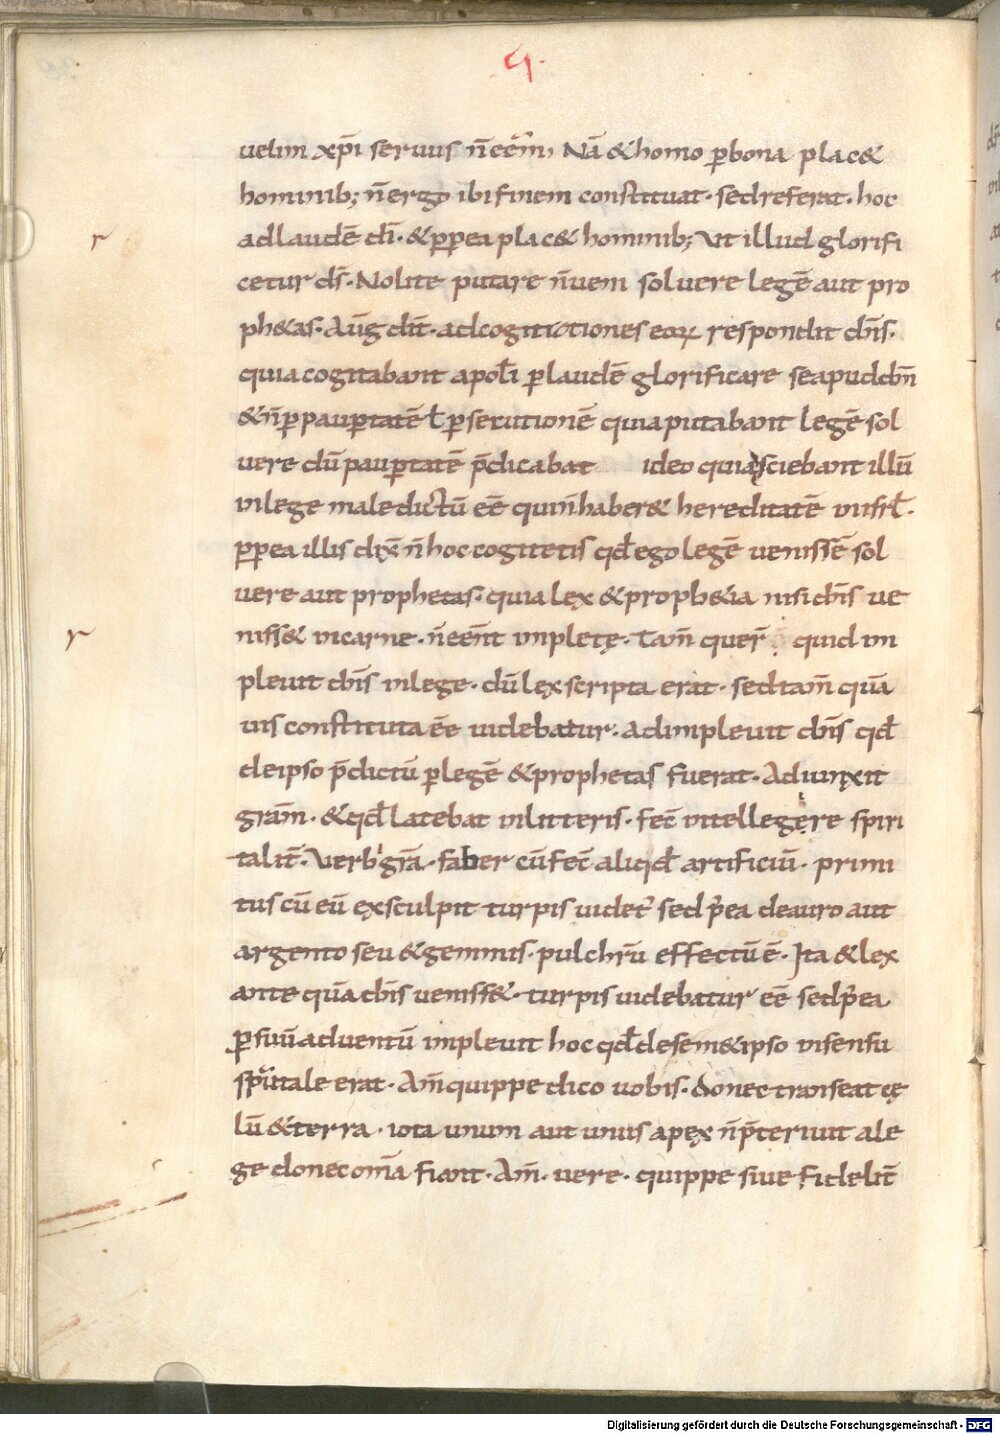 uelim xp̄i seruus n̄ eēm, Nā & homo ꝑ bona plac&
hominib; n̄ ergo ibi finem constituat · sed referat · hoc
ad laudē dī · & ꝓpea plac& hominib; ut illud glorifi
cetur d̄s · Nolite putare n̄ ueni soluere legē aut pro
ph&as · Aug̅ diī · ad cogitationes eoꝝ respondit dn̄s ·
quia cogitabant apoƚi ꝑ laudē glorificare se apud dn̄
& n̄ ꝓ paupertatē ƚ ꝑsecutionē quia putabant legē sol
uere dū paupertatē p̄dicabat ideo quia sciebant illū
in lege maledictū eē qui n̄ haber& hereditatē in isrƚ ·
ꝓpea illis dix̄ n̄ hoc cogitetis qđ ego legē uenissē sol
uere aut prophetas · quia lex & proph&ia nisi dn̄s ue
niss& in carne · n̄ eēnt impletę · Tam̄ quer̄ quid im
pleuit dn̄s in lege · dū lex scripta erat · sed tam̄ quā
uis constituta eē uidebatur · Adimpleuit dn̄s qđ
de ipso p̄dictū ꝑ legē & prophetas fuerat · Adiunxit
grām · & qđ latebat in litteris · fec̄ intellegere spiri
talit̄ · Verbi grā · faber cū fec̄ aliqđ artificiū · primi
tus cū eū exsculpit turpis uidet̄ sed p̄ea de auro aut
argento seu & gemmis · pulchrū effectū ē · Ita & lex
ante quā dn̄s ueniss& · turpis uidebatur eē sed p̄ea
ꝑ suū aduentū impleuit hoc qđ de sem&ipso in sensu
sp̄uitale erat · Am̄ quippe dico uobis · donec transeat cę
lū & terra · iota unum aut unus apex n̄ p̄teriuit a le
ge donec om̄a fiant · Am̄ · uere · quippe siue fidelit̄
Digitalisierung gefördert durch die Deutsche Forschungsgemeinschaft - DFG